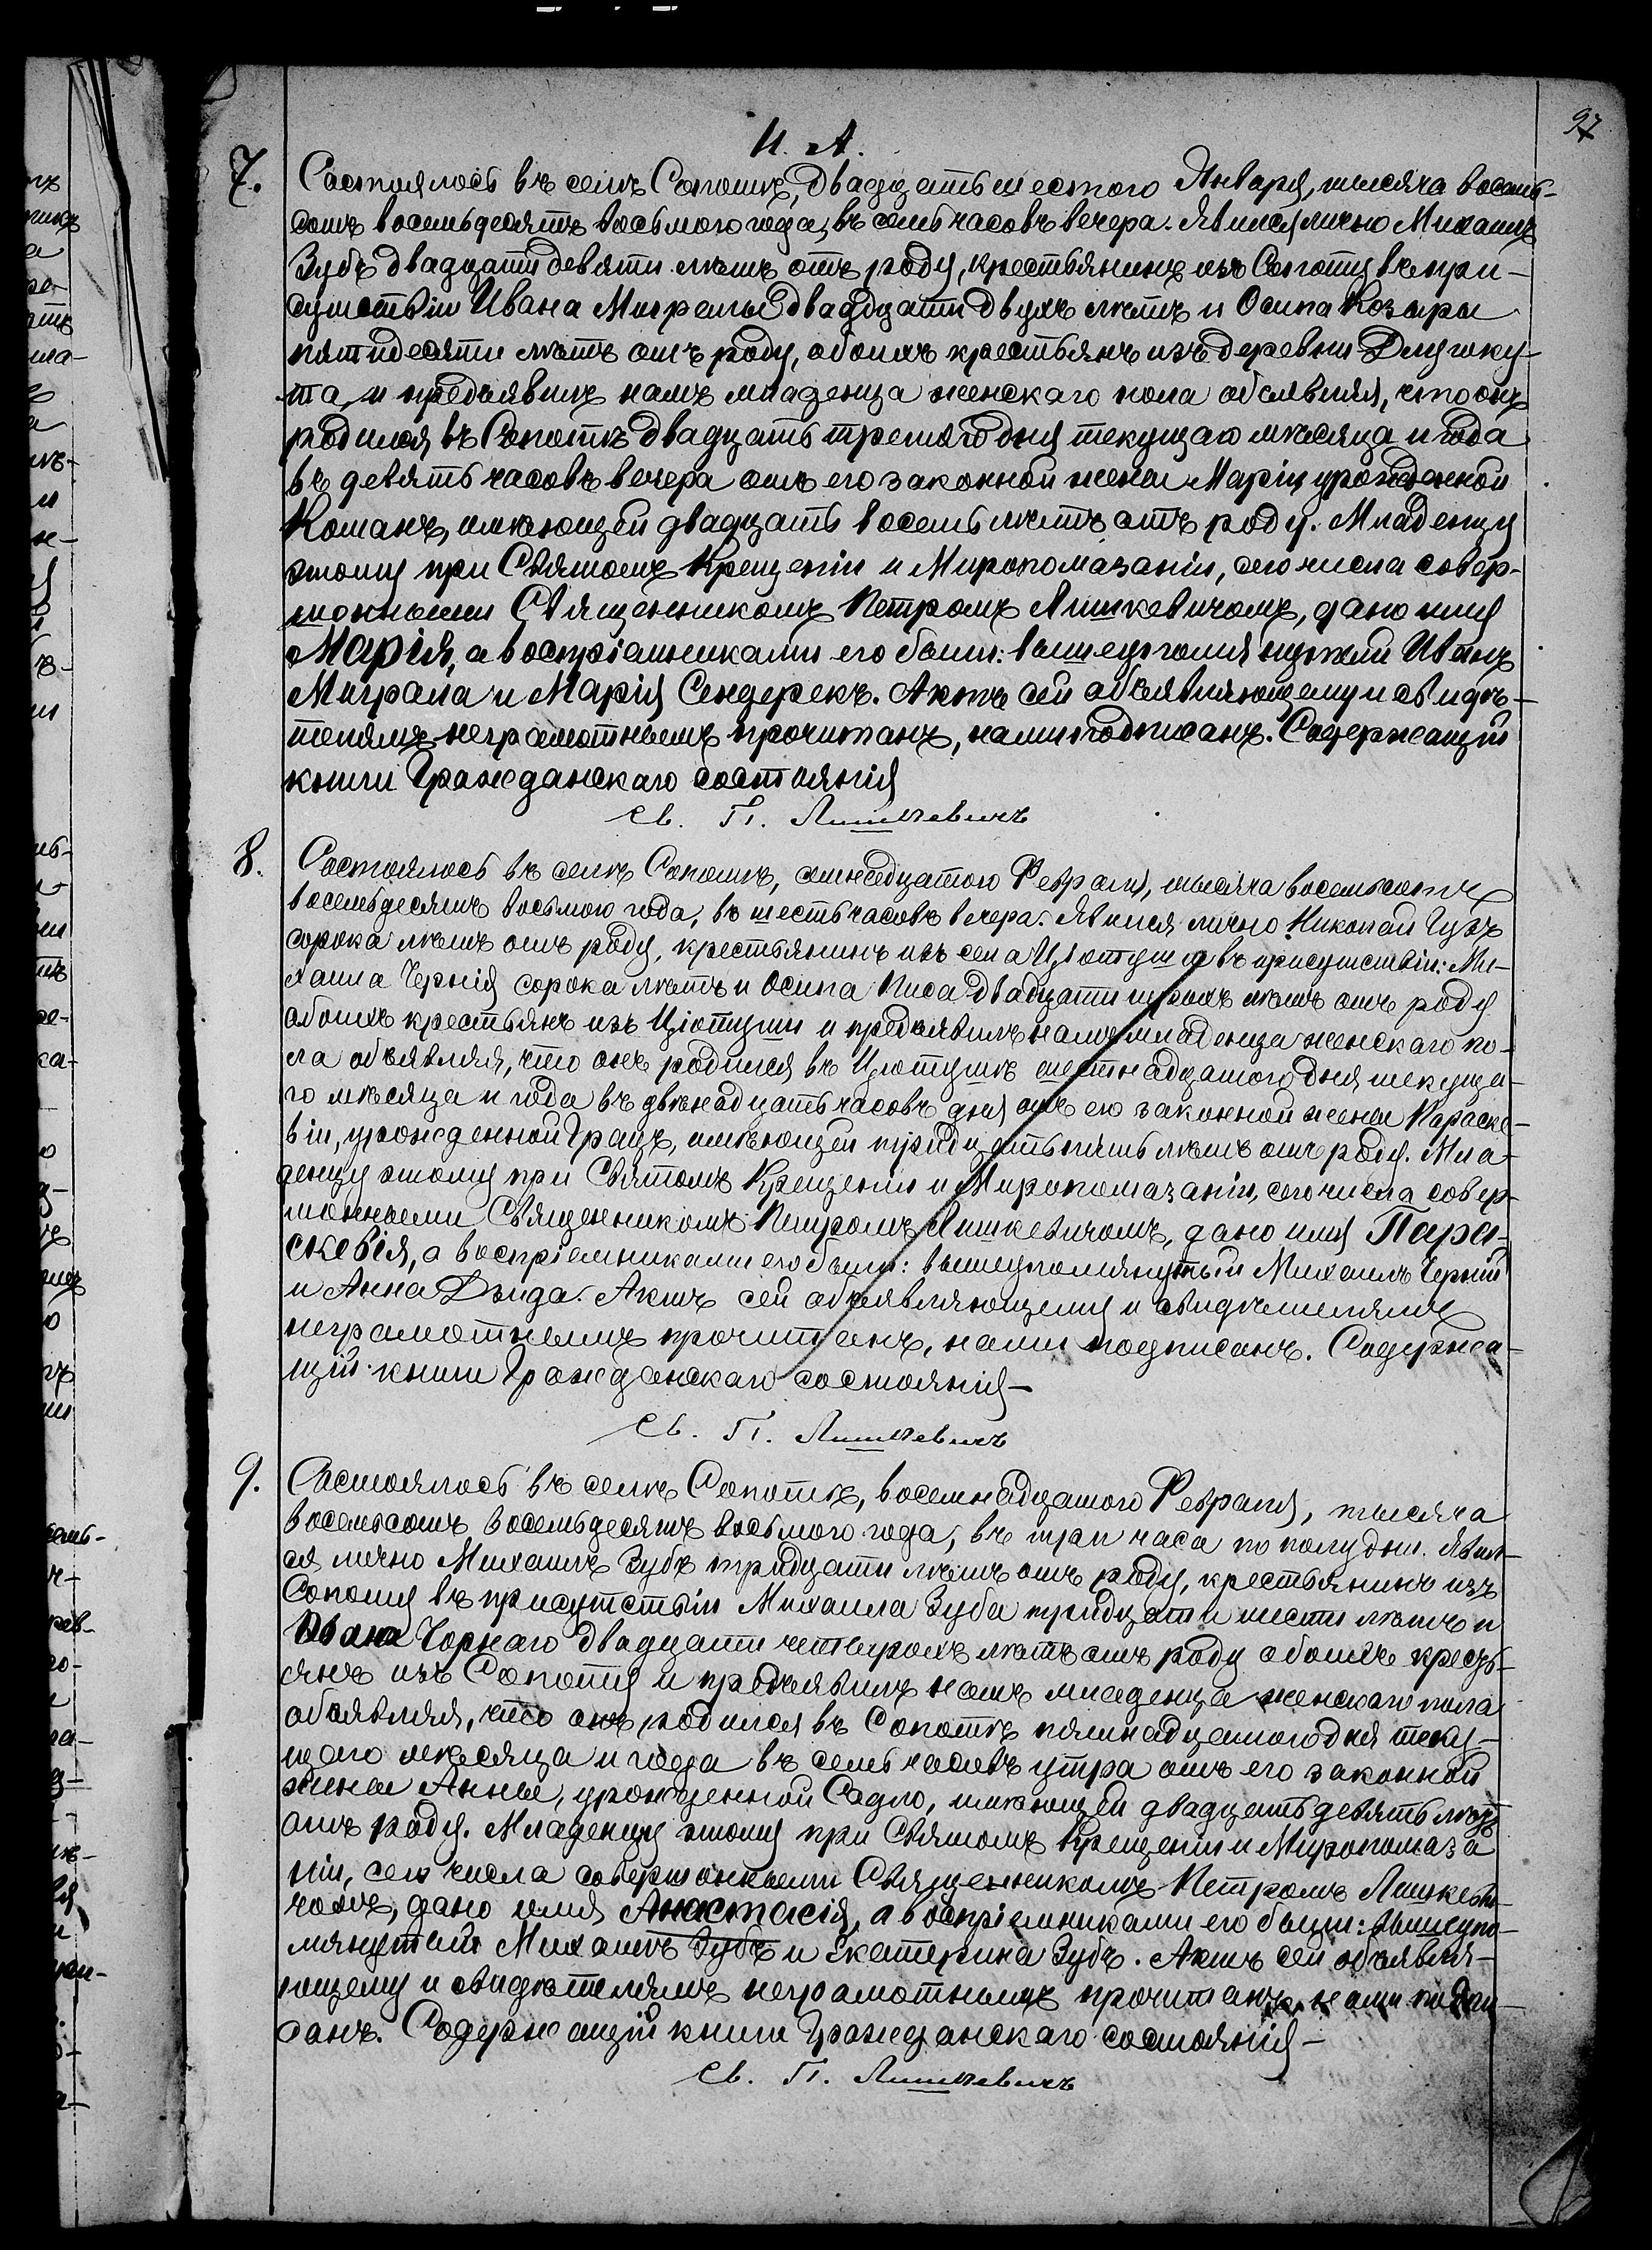 97
И. А.
7. Состоялось въ селѣ Сопотѣ, двадцать шестого Января, тысяча восемь-
сотъ восемьдесятъ восьмого года, въ семь часовъ вечера. Явился лично Михаилъ
Зубъ двадцати девяти лѣтъ отъ роду, крестьянинъ изъ Сопоту въ при-
сутствіи Ивана Миграла двадцати двухъ лѣтъ и Осипа Козыры
пятидесяти лѣтъ отъ роду, обоихъ крестьянъ изъ деревни Длугику-
та, и предъявилъ намъ младенца женскаго пола объявляя, что онъ
родился въ Сопотѣ двадцать третьяго дня текущаго мѣсяца и года
въ девять часовъ вечера отъ его законной жены Маріи урожденной
Команъ, имѣющей двадцать восемь лѣтъ отъ роду. Младенцу
этому при Святомъ Крещеніи и Миропомазаніи, сего числа совер-
шонными Священникомъ Петромъ Лишкевичомъ, дано имя
Марія, а воспріемниками его были: вышеупомянутый Иванъ
Миграла и Марія Сендерекъ. Актъ сей объявляющему и свидѣ-
телямъ неграмотнымъ прочитанъ, нами подписанъ. Содержащій
книги Гражданскаго состоянія
Св. П. Лишкевичъ
8. Состоялось въ селѣ Сопотѣ, Февраля, тысяча восемьсотъ
восемьдесятъ восьмого года, въ шесть часовъ вечера. Явился лично Николай Гузъ
сорока лѣтъ отъ роду, крестьянинъ изъ села Цѣотуши въ присутствіи: Ми-
хаила Чернія сорока лѣтъ и Осипа Писа двадцати трехъ лѣтъ отъ роду
обоихъ крестьянъ изъ Цѣотуши и предъявилъ намъ младенца женскаго по-
ла объявляя, что онъ родился въ Цѣотушѣ шестнадцатого дня текуща-
го мѣсяца и года въ двѣнадцать часовъ дня отъ его законной жены Параске-
віи, урожденной Грацъ, имѣющей тридцать пять лѣтъ отъ роду. Мла-
денцу этому при Святомъ Крещеніи и Миропомазаніи, сего числа совер-
шонными Священникомъ Петромъ Лишкевичомъ, дано имя Пара-
скевія, а воспріемниками его были: вышеупомянутый Михаилъ Черній
и Анна Дзида. Актъ сей объявляющему и свидѣтелямъ
неграмотнымъ прочитанъ, нами подписанъ. Содержа-
щій книги Гражданскаго состоянія—
Св. П. Лишкевичъ
9. Состоялось въ селѣ Сопотѣ, восемнадцатого Февраля, тысяча
восемьсотъ восемьдесятъ восьмого года, въ три часа по полудни. Явил-
ся лично Михаилъ Зубъ тридцати лѣтъ отъ роду, крестьянинъ изъ
Сопоту въ присутствіи Михаила Зуба тридцати шести лѣтъ и
Ивана Чорнаго двадцати четырохъ лѣтъ отъ роду обоихъ кресть-
янъ изъ Сопота и предъявилъ намъ младенца женскаго пола
объявляя, что онъ родился въ Сопотѣ пятнадцатого дня теку-
щаго мѣсяца и года въ семь часовъ утра отъ его законной
жены Анны, урожденной Садло, имѣющей двадцать девять лѣтъ
отъ роду. Младенцу этому при Святомъ Крещеніи и Миропомаза
ніи, сего числа совершонными Священникомъ Петромъ Лишкеви-
чомъ, дано имя Анастасія, а воспріемниками его были: вышеупо-
мянутый Михаилъ Зубъ и Екатерина Зубъ. Актъ сей объявля-
ющему и свидѣтелямъ неграмотнымъ прочитанъ, нами подпи-
санъ. Содержащій книги Гражданскаго состоянія—
Св. П. Лишкевичъ